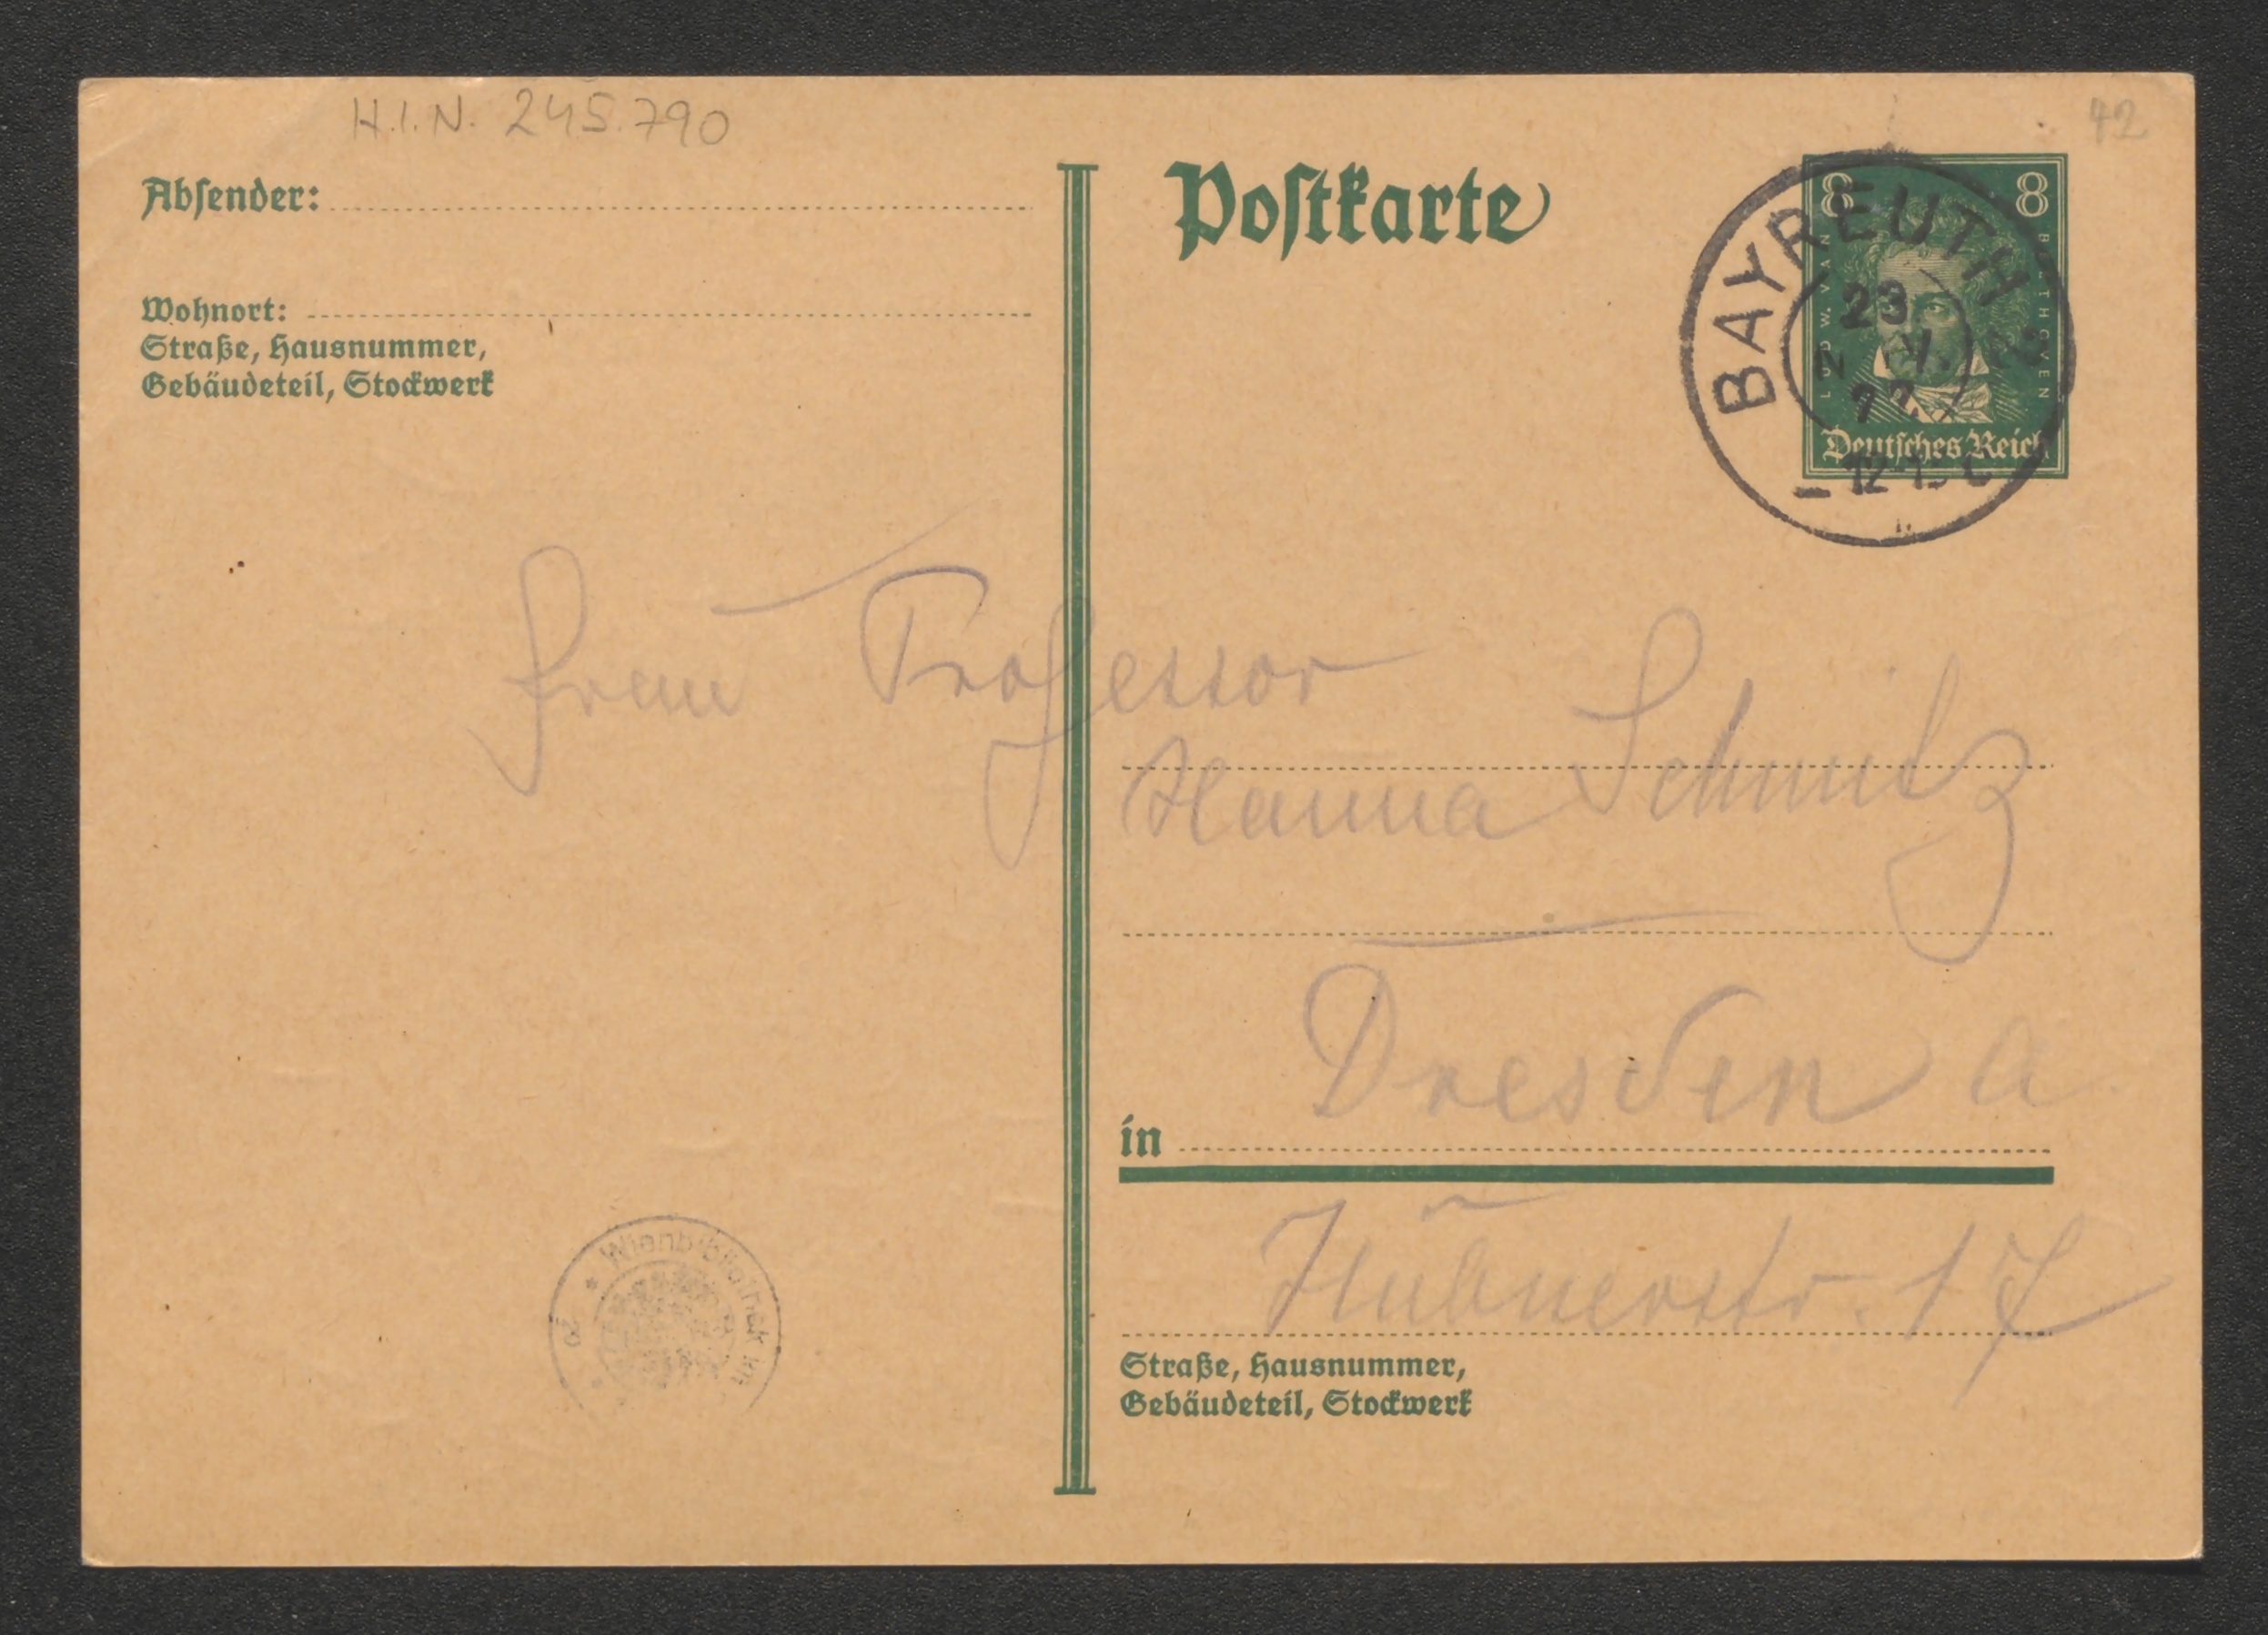 H.I.N. 245.790
42
Absender:
Wohnort:
Straße, Hausnummer,
Gebäudeteil, Stockwerk
Postkarte
8 8
LUDW. VAN BEETHOVEN
Deutsches Reich
BAYREUTH
23
Frau Professor
Hanna Schmitz
Dresden A.
in
Hübnerstr. 17
Straße, Hausnummer,
Gebäudeteil, Stockwerk
Wienbibliothek im